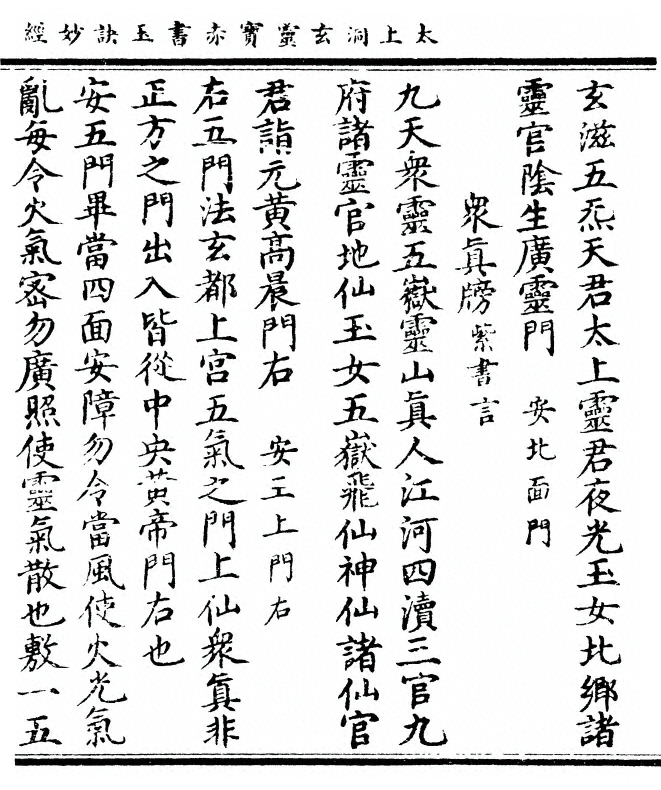 太上洞玄靈寶赤書玉訣妙經
玄滋五炁天君太上靈君夜光玉女北鄉諸
靈官陰生廣靈門 安北面門
衆眞牓紫書言
九天衆靈五嶽靈山眞人江河四瀆三官九
府諸靈官地仙玉女五嶽飛仙神仙諸仙官
君詣元黃高晨門右 安王上門右
右五門法玄都上宮五氣之門上仙衆眞非
正方之門出入皆從中央黃帝門右也
安五門畢當四面安障勿令當風使火光氣
亂每令火氣密勿廣照使靈氣散也敷一五